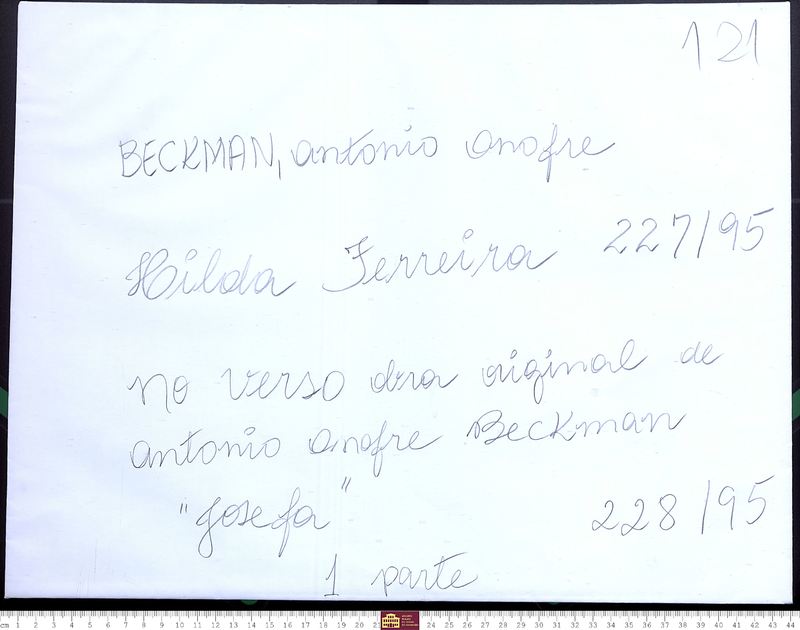 121
BECKMAN, antonio onofre
Hilda Ferreira 227/95
no verso obra original de
antonio onofre Beckman
"Josefa" 228/95
1 parte
cm 1 2 3 4 5 6 7 8 9 10 11 12 13 14 15 16 17 18 19 20 21 24 25 26 27 28 29 30 31 32 33 34 35 36 37 38 39 40 41 42 43 44